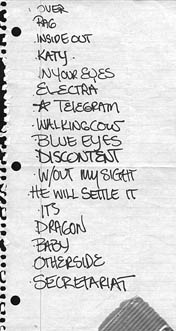 · OVER
RAG
· INSIDE OUT
· KATY ·
IN YOUR EYES
· ELECTRA
TELEGRAM
· WALKING COW
· BLUE EYES
· DISCONTENT
· W/OUT MY SIGHT
HE WILL SETTLE IT
· ITS
DRAGON
BABY
OTHERSIDE
· SECRETARIAT